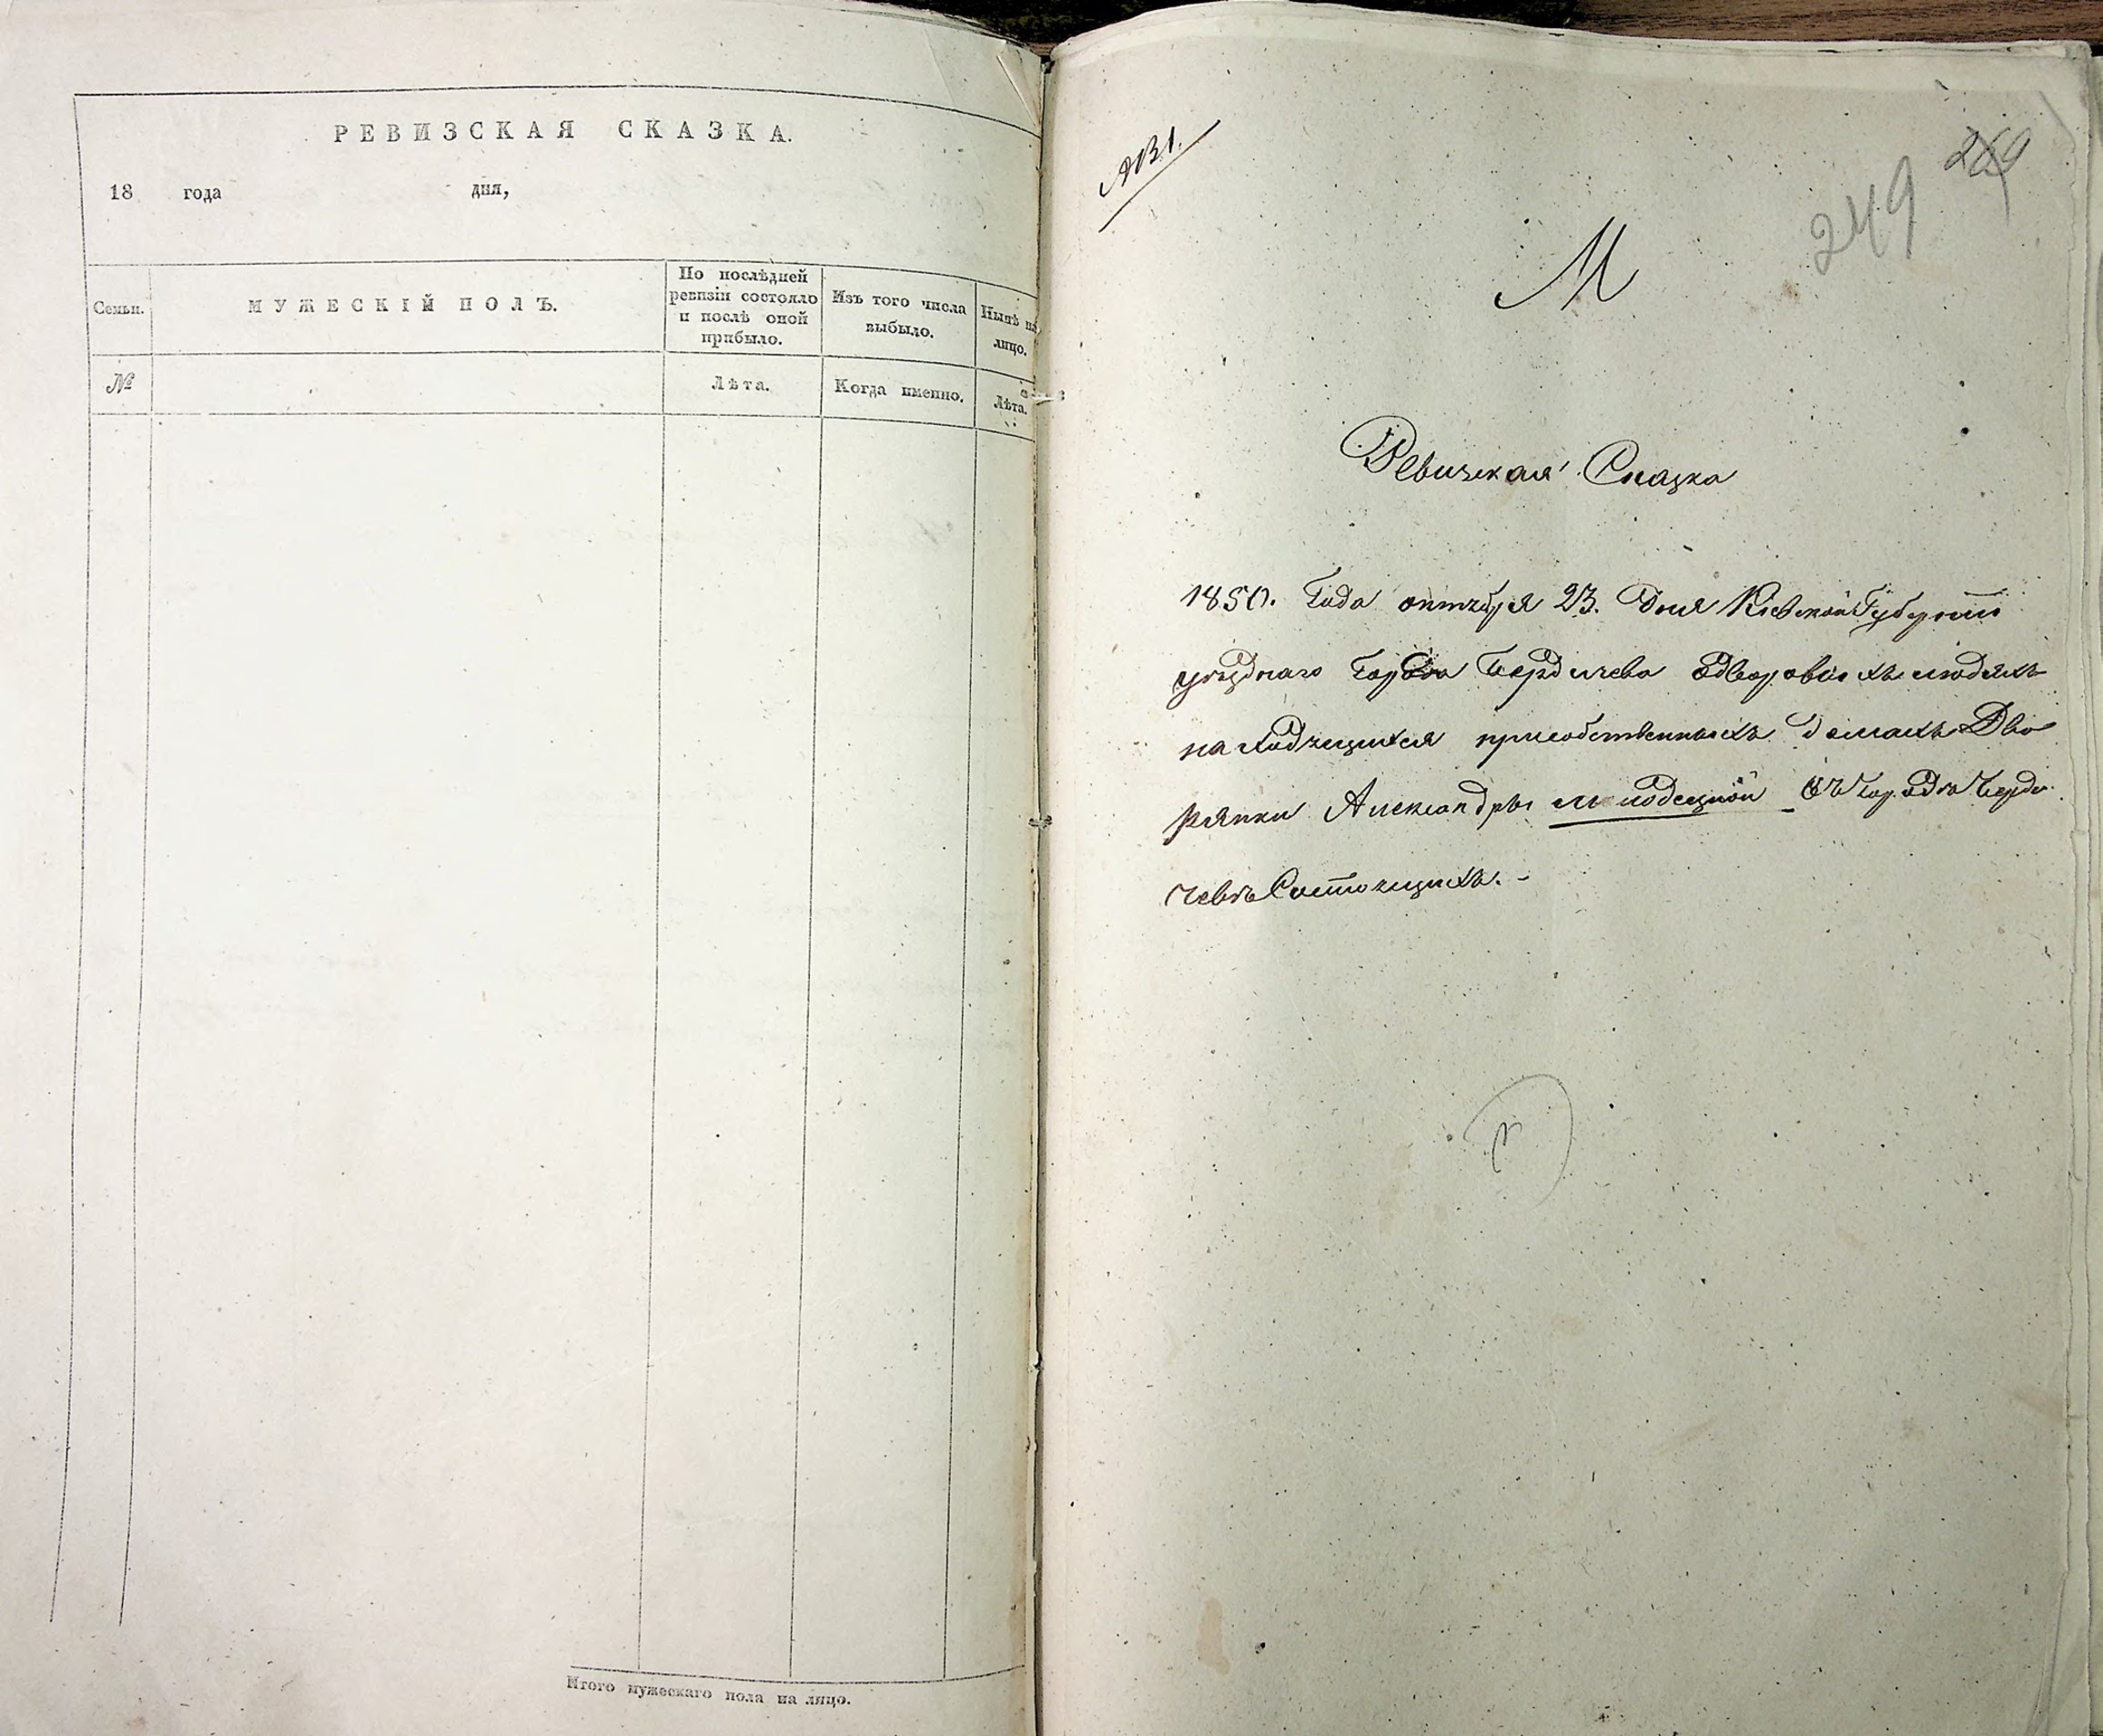 РЕВИЗСКАЯ СКАЗКА.
18 года дня,
Семьи.
МУЖЕСКІЙ ПОЛЪ.
По послѣдней
ревизіи состояло
и послѣ оной
прибыло.
Изъ того числа
выбыло.
Нынѣ на
лицо.
№
Лѣта.
Когда именно.
Лѣта.
Итого мужескаго пола на лицо.
269
249
М
Ревизская Сказка
1850. Года октября 23. Дня Кіевской Губерніи
уѣзднаго Города Бердичева Одворовыхъ людяхъ
находящихся присобственныхъ домахъ Дво
рянки Александры Млодецкой въ Городѣ Берди
чевѣ Состоящихъ. -